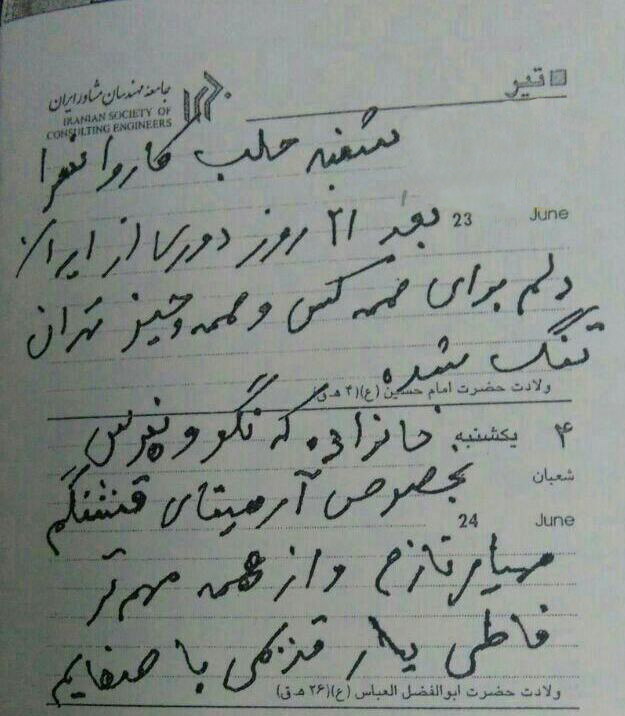 تیر
جامعه مهندسان مشاور ایران
IRANIAN SOCIETY OF
CONSULTING ENGINEERS
شنبه حلب
بعد ۲۱ روز دوری از ایران
23 June
دلم برای همه کس و همه چیز تهران
تنگ شده
ولادت حضرت امام حسین (ع)(۴ ه.ق)
خانواده که نگو و نپرس
۴ یکشنبه
شعبان
بخصوص آرمیتای قشنگم
24 June
مهیار نازم و از همه مهم تر
فاطی یار قدیمی با صفایم
ولادت حضرت ابوالفضل العباس (ع)(۲۶ ه.ق)